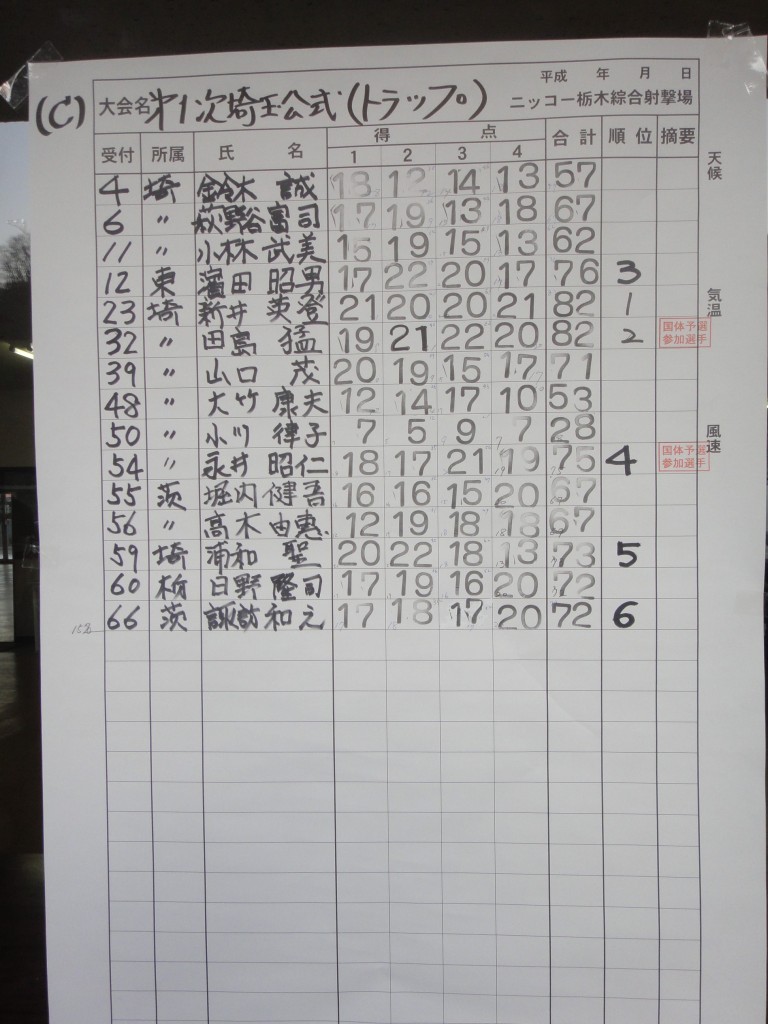 平成 年 月 日
(C) 大会名 第1次埼玉公式(トラップ) ニッコー栃木綜合射撃場
受付 所属 氏 名 得 点 合計 順位 摘要
1 2 3 4
天候
4 埼 鈴木 誠 18 12 14 13 57
6 〃 萩野谷富司 17 19 13 18 67
11 〃 小林 武美 15 19 15 13 62
12 東 濱田 昭男 17 22 20 17 76 3
気温
23 埼 新井 英登 21 20 20 21 82 1
32 〃 田島 猛 19 21 22 20 82 2 国体予選
参加選手
39 〃 山口 茂 20 19 15 17 71
48 〃 大竹 康夫 12 14 17 10 53
風速
50 〃 小川 律子 7 5 9 7 28
54 〃 永井 昭仁 18 17 21 19 75 4 国体予選
参加選手
55 茨 堀内 健吾 16 16 15 20 67
56 〃 高木 由恵 12 19 18 18 67
59 埼 浦和 聖 20 22 18 13 73 5
60 栃 日野 隆司 17 19 16 20 72
66 茨 諏訪 和元 17 18 17 20 72 6